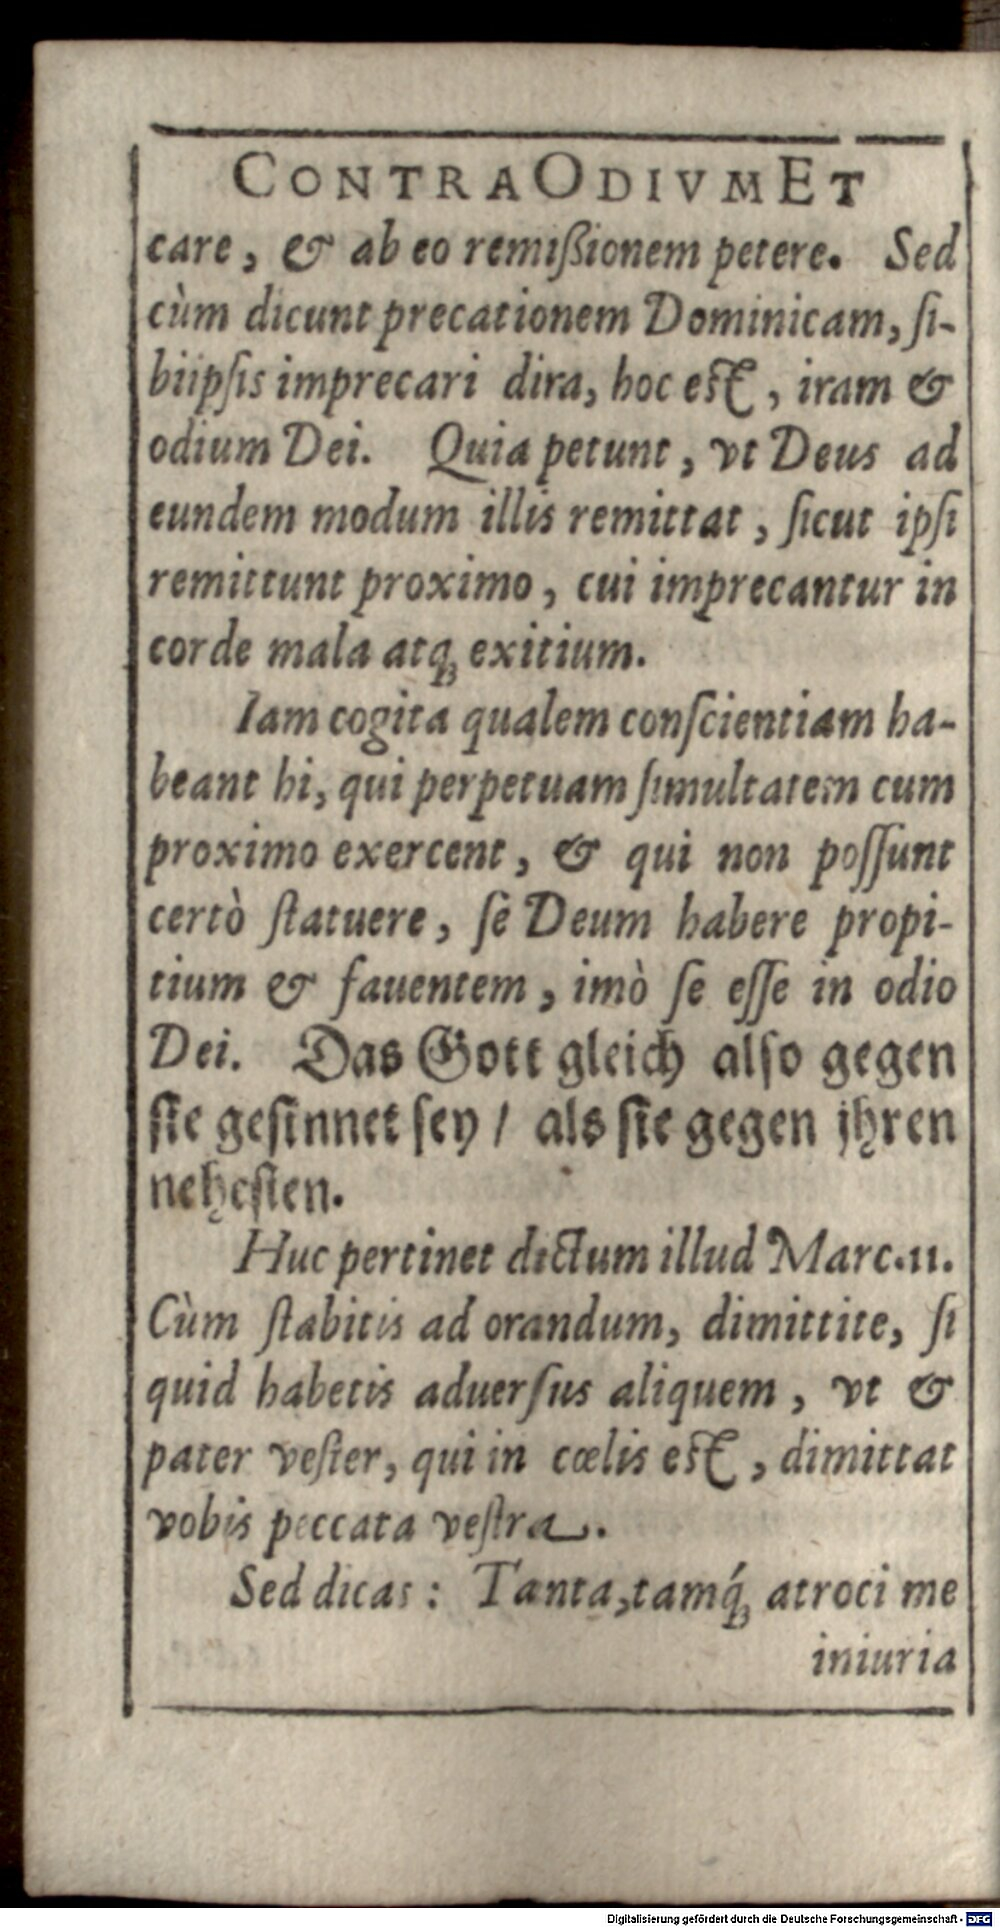 CONTRA ODIVM ET
care, & ab eo remißionem petere. Sed
cùm dicunt precationem Dominicam, ſi-
biipſis imprecari dira, hoc eſt, iram &
odium Dei. Quia petunt, vt Deus ad
eundem modum illis remittat, ſicut ipſi
remittunt proximo, cui imprecantur in
corde mala atq́ꝫ exitium.
Iam cogita qualem conſcientiam ha-
beant hi, qui perpetuam ſimultatem cum
proximo exercent, & qui non poſſunt
certò ſtatuere, ſe Deum habere propi-
tium & fauentem, imò ſe eſſe in odio
Dei. Das Gott gleich alſo gegen
ſie geſinnet ſey / als ſie gegen jhren
neheſten.
Huc pertinet dictum illud Marc. 11.
Cùm ſtabitis ad orandum, dimittite, ſi
quid habetis aduerſus aliquem, vt &
pater veſter, qui in cœlis eſt, dimittat
vobis peccata veſtra.
Sed dicas: Tanta, tamq́ꝫ atroci me
iniuria
Digitalisierung gefördert durch die Deutsche Forschungsgemeinschaft - DFG